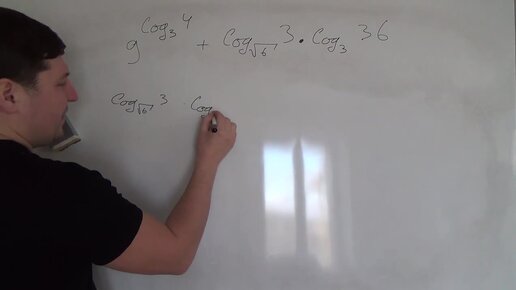 9^{log_3 4} + log_{√6} 3 · log_3 36
log_{√6} 3 · log